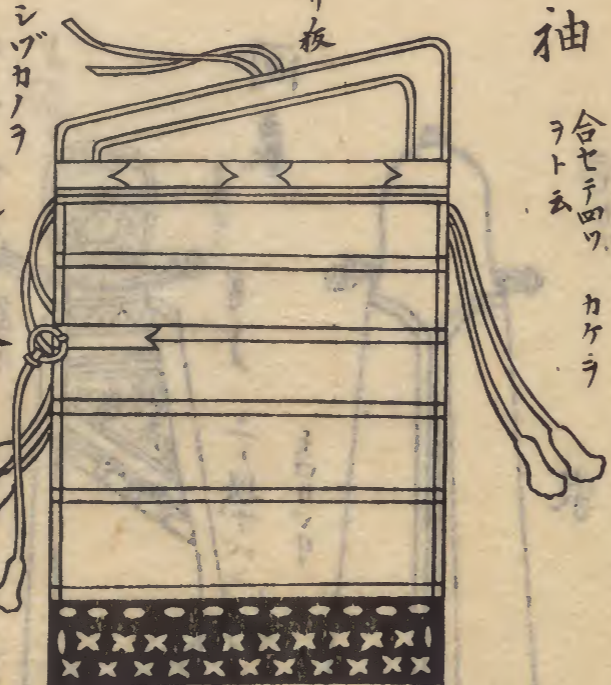 袖
合セテ四ツ
ヲト云
カケヲ
リ板
シヅカノヲ